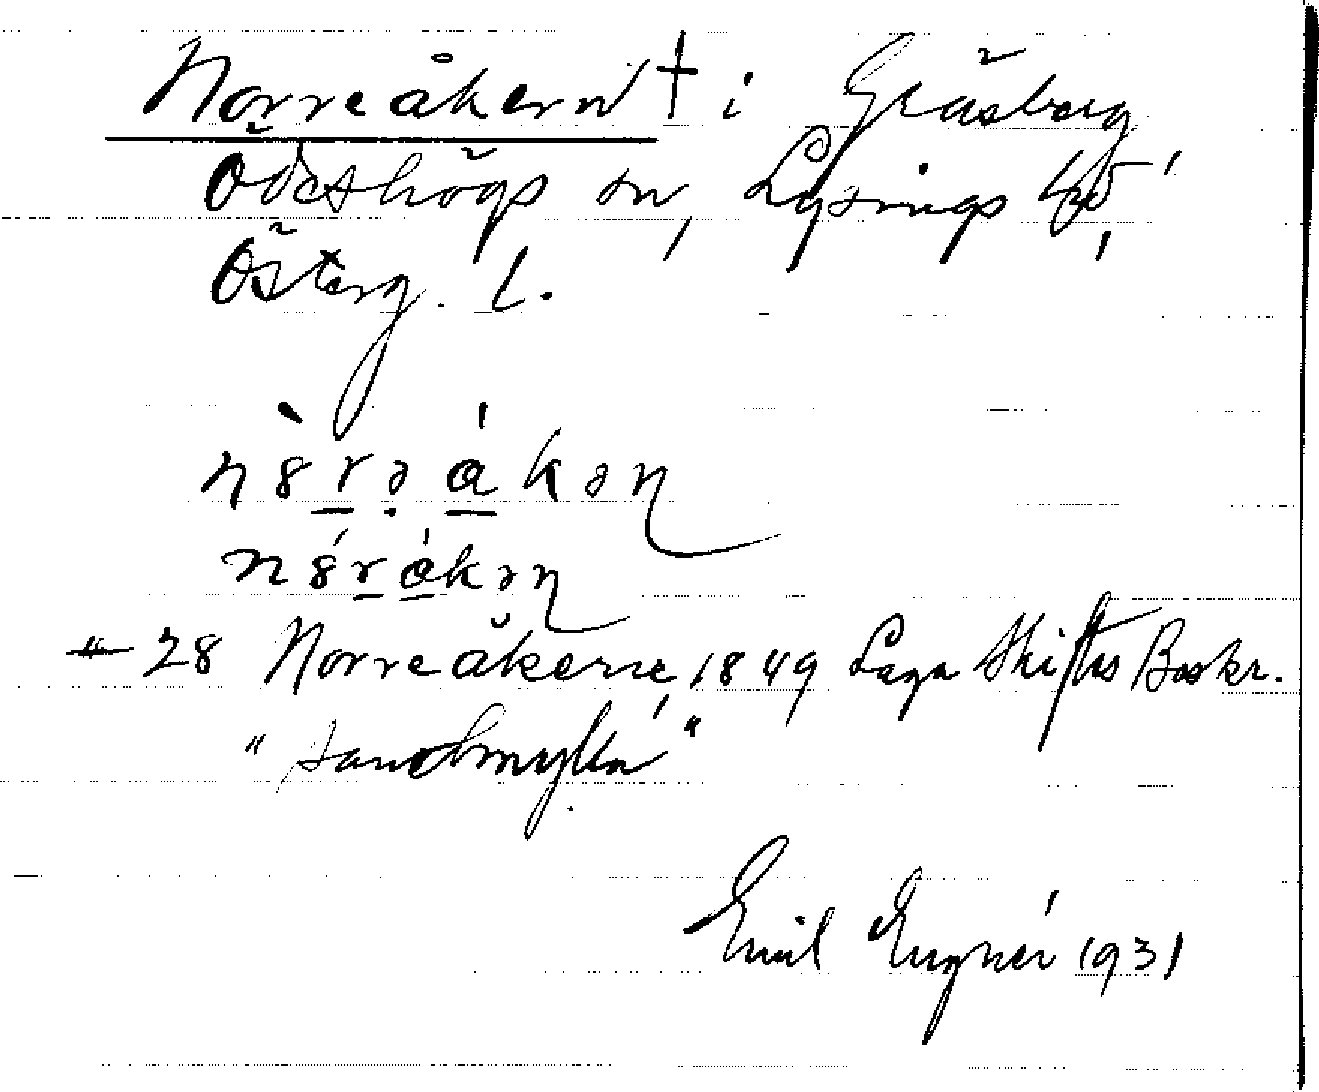 Norreåkern † i Gräsberg
Ödeshögs sn, Lysings hd,
Österg. l.
nɤ̀rəåkən
nɤ́råkən
28 Norreåkerne, 1849 Laga Skiftes Beskr.
"sandmylla"
Emil 1931